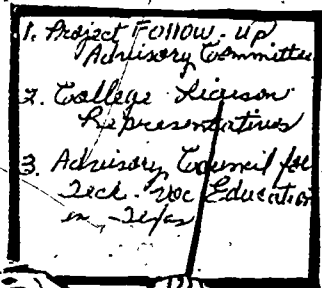 1. Project Follow-up
Advisory Committee
2. College Liaison
Representatives
3. Advisory Council for
Tech-Voc Education
in Texas